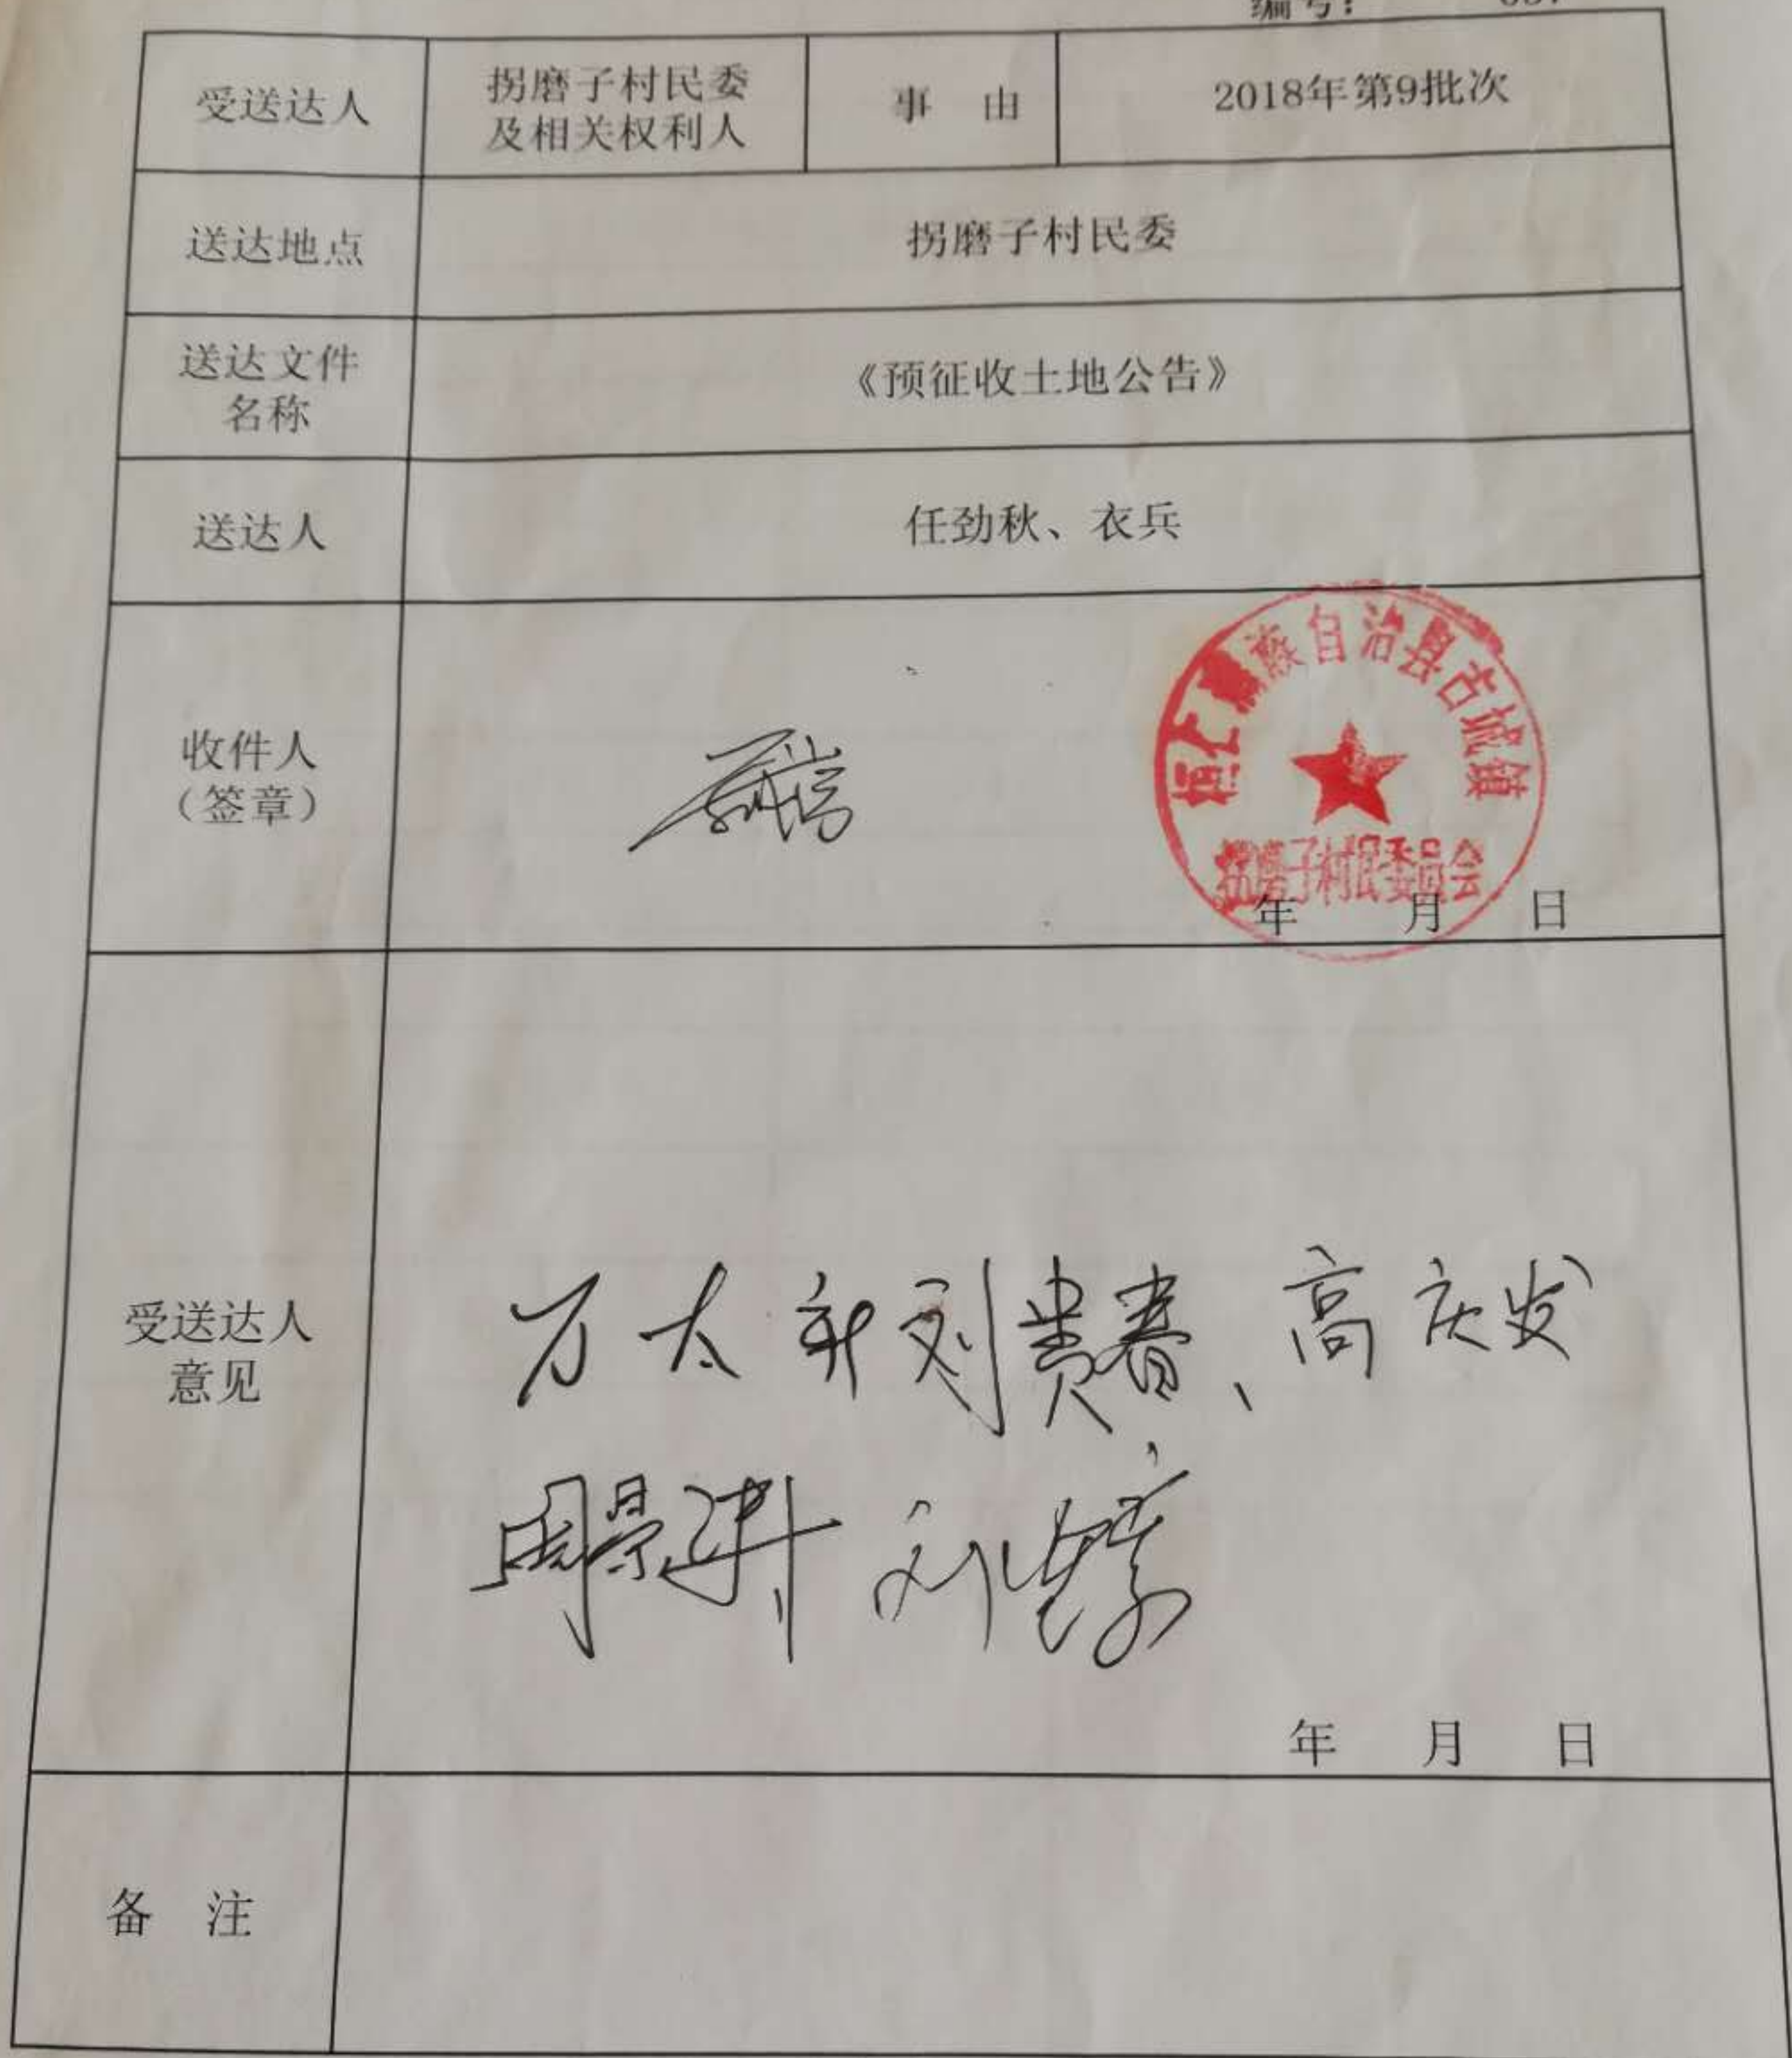 编号:
受送达人
拐磨子村民委
及相关权利人
事 由
2018年第9批次
送达地点
拐磨子村民委
送达文件
名称
《预征收土地公告》
送达人
任劲秋、衣兵
收件人
(签章)
桓仁满族自治县古城镇
拐磨子村民委员会
年 月 日
受送达人
意见
万太和 刘贵春、高庆发
周景 刘
年 月 日
备 注